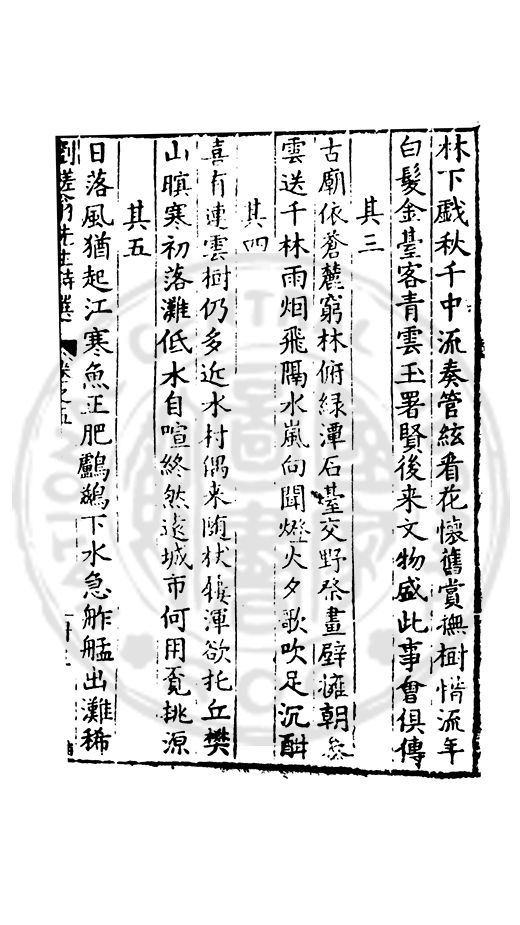 林下戲秋千中流奏管絃看花懷舊賞撫樹惜流年
白髮金臺客青雲玉署賢後来文物盛此事會俱傳
其三
古廟依蒼麓窮林俯綠潭石臺交野祭畫壁擁朝參
雲送千林雨烟飛隔水嵐向聞燈火夕歌吹足沉酣
其四
喜有連雲樹仍多近水村偶来随狀渾欲托丘樊
山暝寒初落灘低水自喧終然遠城市何用覓桃源
其五
日落風猶起江寒魚正肥鸕鷀下水急舴艋出灘稀
先生詩選 卷之五